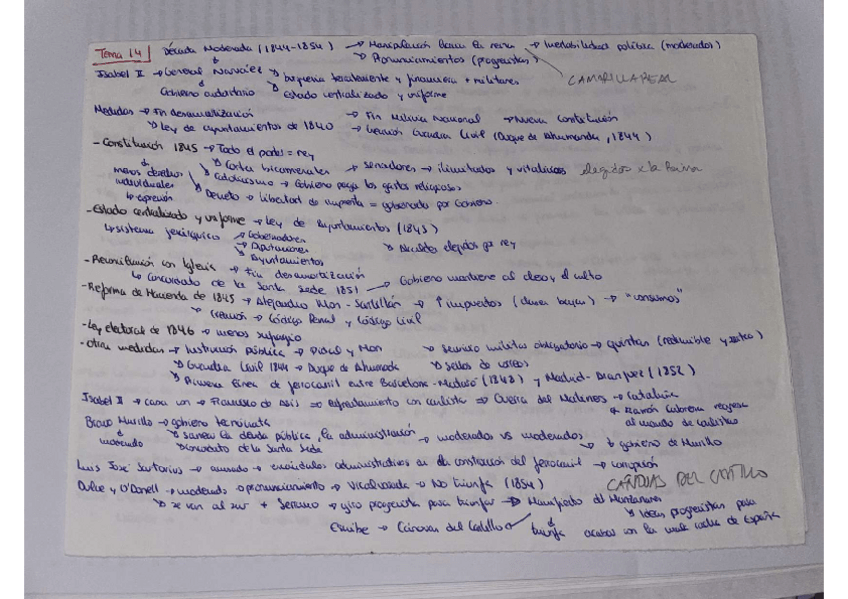 Tema 14 Década Moderada (1844-1854) → Manipulación hacia la reina → Inestabilidad política (moderados)
↘ Pronunciamientos (progresistas)
CAMARILLA REAL
Isabel II → General Narváez ↘ burguesía terrateniente y financiera + militares
Gobierno autoritario ↘ Estado centralizado y uniforme
Medidas → Fin desamortización → Fin Milicia Nacional → Nueva Constitución
↘ Ley de ayuntamientos de 1840 → Creación Guardia Civil (Duque de Ahumada, 1844)
- Constitución 1845 → Todo el poder = rey
↘ Cortes bicamerales → senadores → ilimitados y vitalicios elegidos x la Reina
menos derechos individuales ↘ Catolicismo → Gobierno paga los gastos religiosos
↳ expresión ↘ Decreto → libertad de imprenta = gobernado por Gobierno
- Estado centralizado y uniforme → Ley de Ayuntamientos (1845)
↳ sistema jerárquico → Gobernadores ↘ Alcaldes elegidos por rey
↘ Diputaciones
↘ Ayuntamientos
- Reconciliación con Iglesia → Fin desamortización
↳ Concordato de la Santa Sede 1851 → Gobierno mantiene al clero y el culto
- Reforma de Hacienda de 1845 → Alejandro Mon - Santillán → ↑ impuestos → "consumos"
↳ Creación → Código Penal y Código Civil
- Ley electoral de 1846 → menos sufragio
- Otras medidas → Instrucción pública → Pidal y Mon → Servicio militar obligatorio → quintas (redimible y sorteo)
↘ Guardia Civil 1844 → Duque de Ahumada ↘ Sellos de correos
↘ Primera línea de ferrocarril entre Barcelona - Mataró (1848) y Madrid - Aranjuez (1851)
Isabel II → casa con → Francisco de Asís ⇒ enfrentamiento con carlista ⇒ Guerra del Matiners → Cataluña
↳ Ramón Cabrera regresa al mando de carlistas
Bravo Murillo → gobierno tecnócrata
moderado ↘ sanea la deuda pública, la administración → moderados vs moderados → ↳ gobierno de Murillo
↘ Concordato de la Santa Sede
Luis José Sartorius → escándalos administrativos en la construcción del ferrocarril → corrupción
CÁNOVAS DEL CASTILLO
Dulce y O'Donell → moderado → pronunciamiento → Vicalvarada → No triunfa (1854)
↘ se van al sur + Serrano → giro progresista para triunfar → Manifiesto del Manzanares
↘ Ideas progresistas para
Escribe → Cánovas del Castillo triunfa acabar con la de España